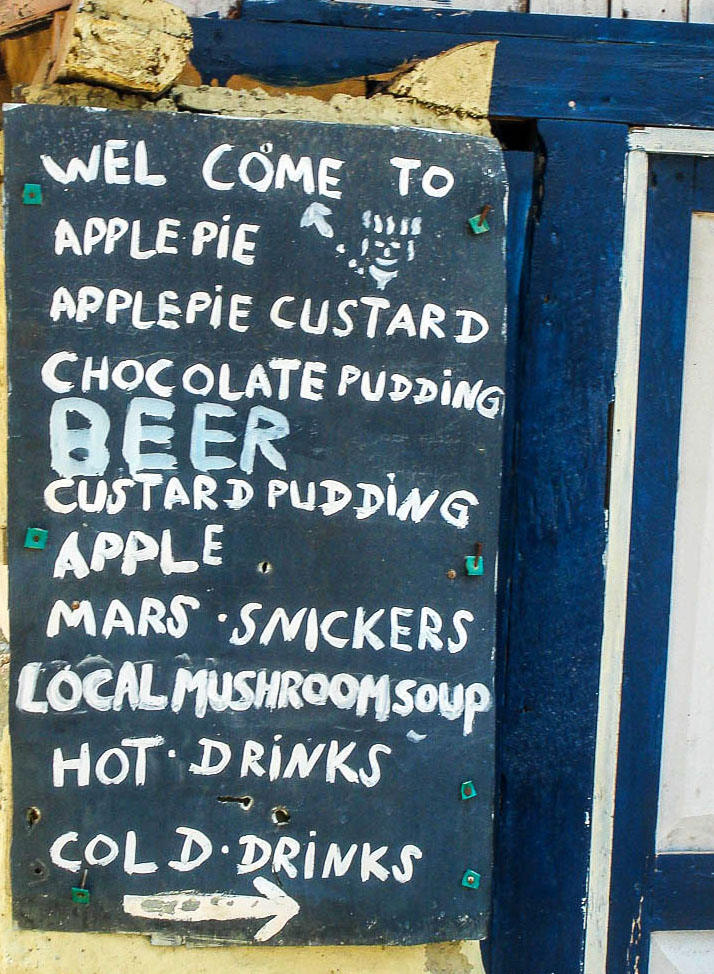 WEL COME TO
APPLE PiE
APPLEPiE CUSTARD
CHOCOLATE PUDDiNG
BEER
CUSTARD PUDDiNG
APPLE
MARS · SNICKERS
LOCAL MUSHROOM SOUP
HOT · DRiNKS
COLD · DRiNKS